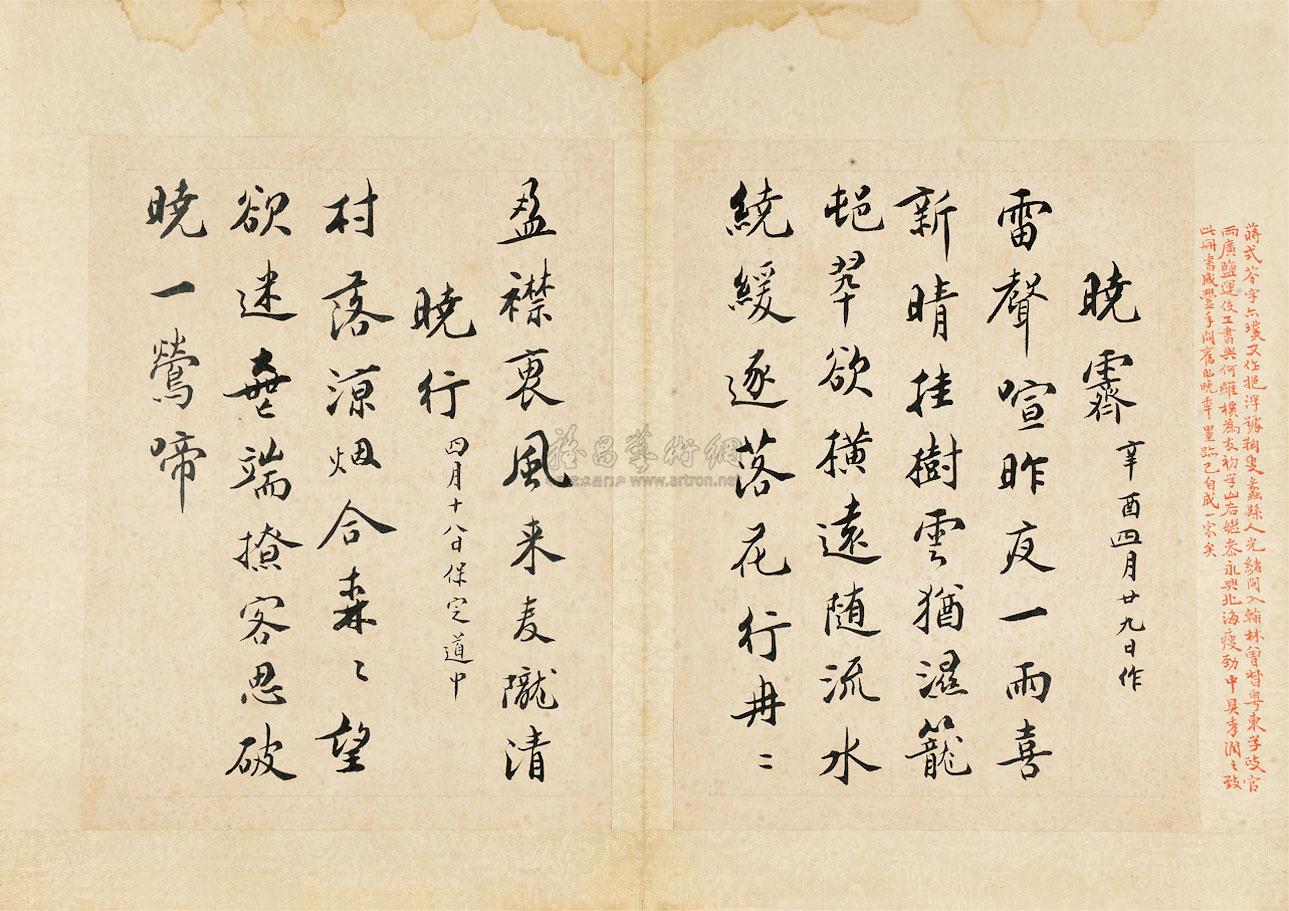 蔣式芬字又作挹浮號蠡縣人光緒間入翰林曾督粤東学政官
兩廣鹽運使工書與何維樸為友初学山右繼參永興北海瘦勁中具秀潤之致
此冊書咸豐年間舊作晚年墨跡已自成一家矣
曉霽 辛酉四月廿九日作
雷聲喧昨夜一雨喜
新晴挂樹雲猶濕籠
邨翠欲橫遠随流水
繞緩逐落花行冉〻
盈襟裏風来麦隴清
曉行 四月十八日保定道中
村落涼烟合森〻望
欲迷無端撩客思破
曉一鶯啼
雅昌藝術網
www.artron.net